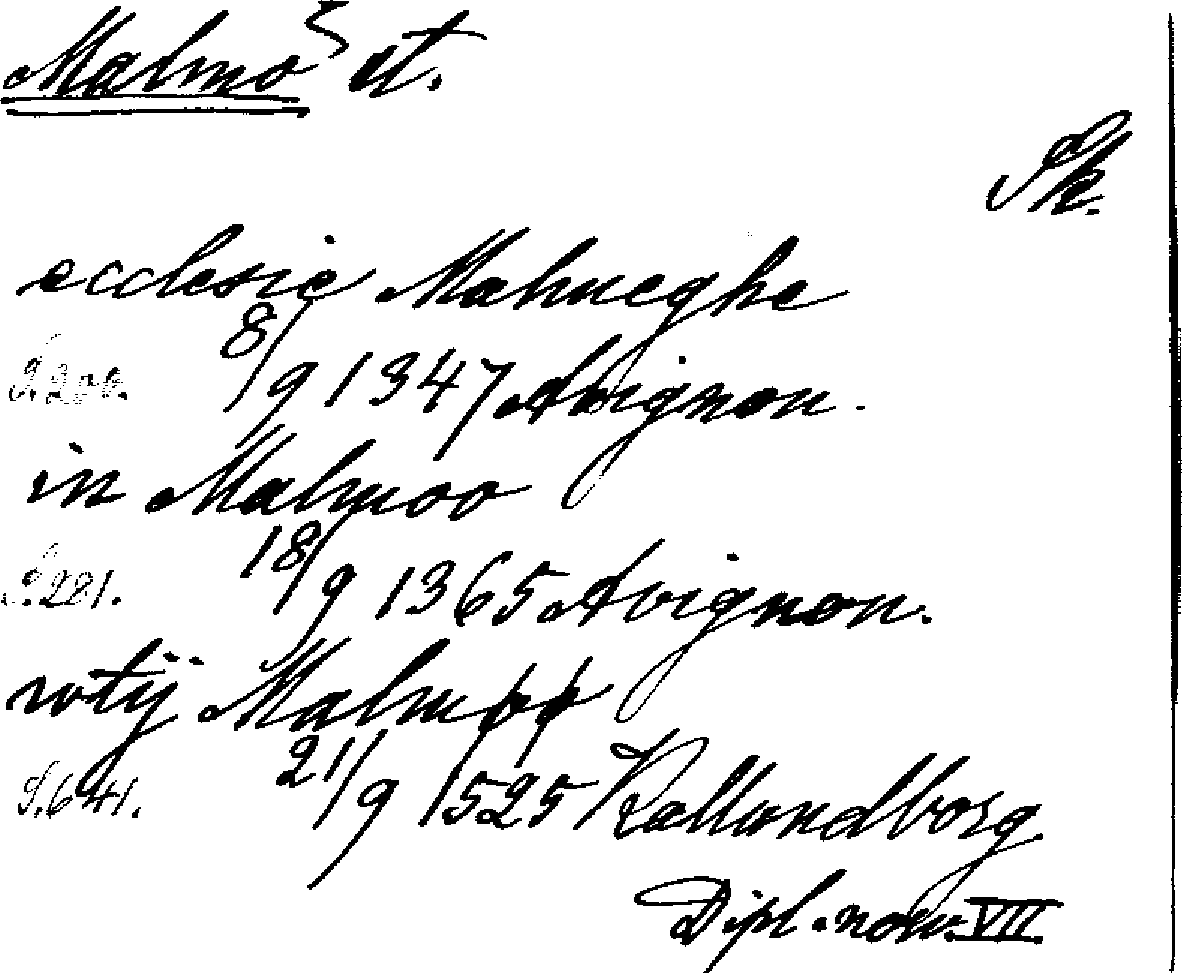 Malmö st.
Sk.
ecclesie Malmeghe
S. 200. 8/9 1347 Avignon.
in Malmoo
S. 221. 18/9 1365 Avignon.
wtij Malmøø
S. 641. 21/9 1525 Kallundborg
Dipl. norv. VII